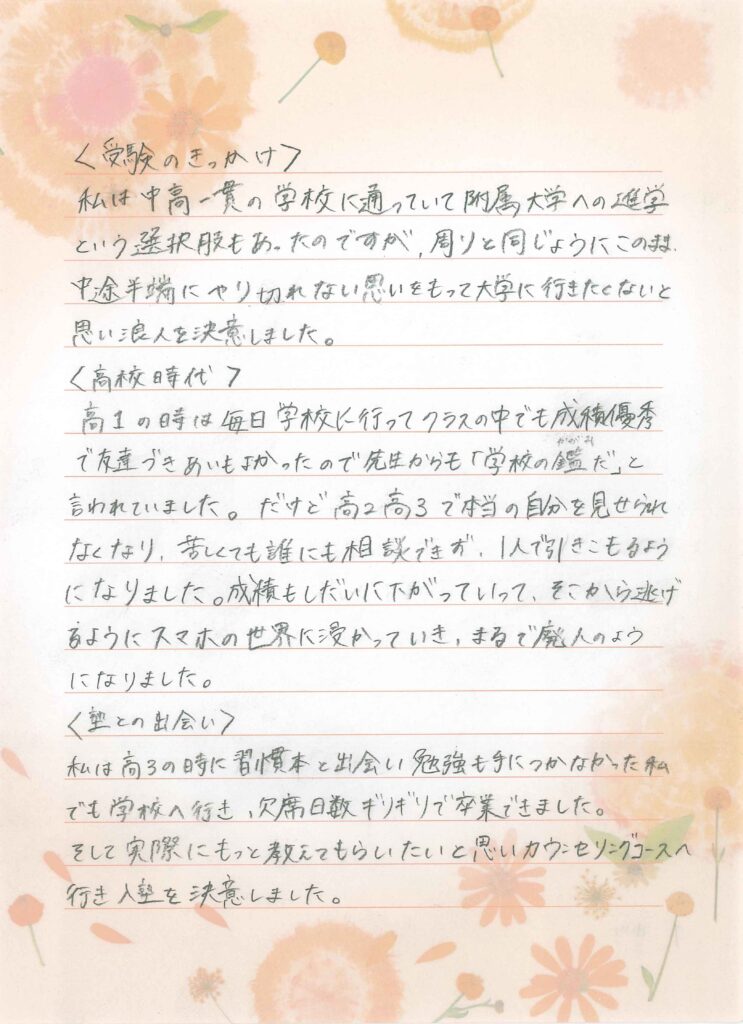 〈受験のきっかけ〉
私は中高一貫の学校に通っていて附属大学への進学
という選択肢もあったのですが、周りと同じようにこのまま
中途半端にやり切れない思いをもって大学に行きたくないと
思い浪人を決意しました。
〈高校時代〉
高1の時は毎日学校に行ってクラスの中でも成積優秀
で友達づきあいもよかったので先生からも「学校の鑑だ」と
かがみ
言われていました。だけど高2高3で本当の自分を見せられ
なくなり、苦しくても誰にも相談できず、1人で引きこもるよう
になりました。成積もしだいに下がっていって、そこから逃げ
るようにスマホの世界に浸かっていき、まるで廃人のよう
になりました。
〈塾との出会い〉
私は高3の時に習慣本と出会い勉強も手につかなかった私
でも学校へ行き、欠席日数ギリギリで卒業できました。
そして実際にもっと教えてもらいたいと思いカウンセリングコースへ
行き入塾を決意しました。